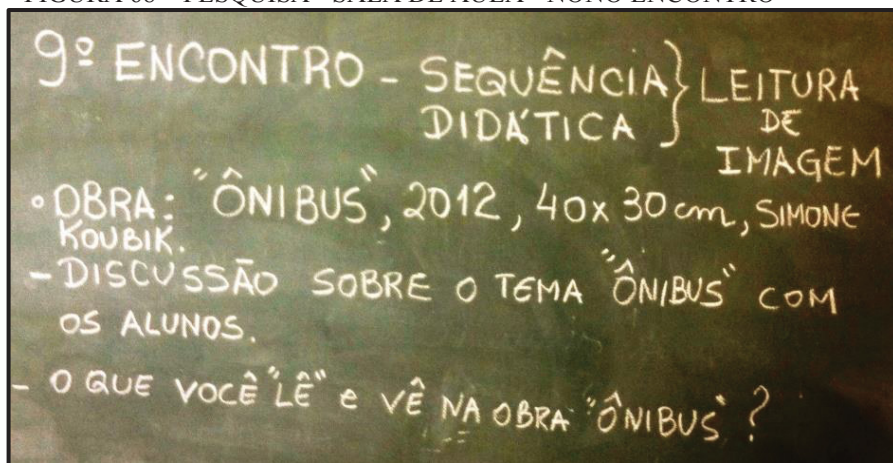 9º ENCONTRO - SEQUÊNCIA DIDÁTICA } LEITURA DE IMAGEM
• OBRA: "ÔNIBUS", 2012, 40x30cm, SIMONE
KOUBIK.
- DISCUSSÃO SOBRE O TEMA "ÔNIBUS" COM
OS ALUNOS.
- O QUE VOCÊ "LÊ" e VÊ NA OBRA "ÔNIBUS"?